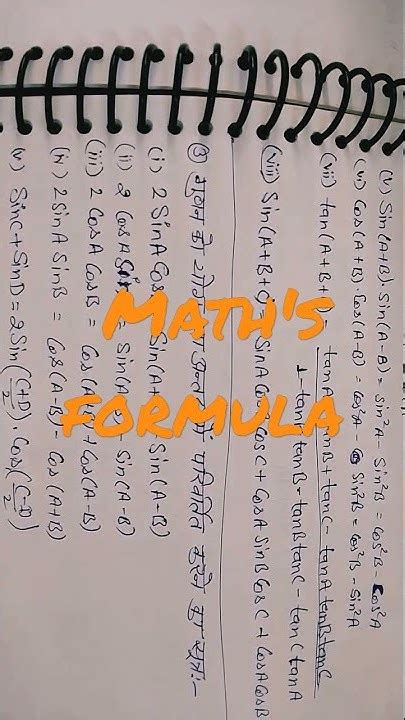 (v) Sin(A+B).Sin(A-B) = Sin²A - Sin²B = Cos²B - Cos²A
(vi) Cos(A+B).Cos(A-B) = Cos²A - Sin²B = Cos²B - Sin²A
(vii) tan(A+B+ = tanA tanB + tanC - tanA tanB tanC
1 - tanA tanB - tanB tanC - tanC tanA
(viii) Sin(A+B+C) = SinA CosB CosC + CosA SinB CosC + CosA CosB
③ गुणन को योग अन्तर में परिवर्तित करने का सूत्र :-
(i) 2 SinA Cos Sin(A+ Sin(A-B)
(ii) 2 CosA Sin = Sin(A+ - Sin(A-B)
(iii) 2 CosA CosB = Cos(A+B) + Cos(A-B)
(iv) 2 SinA SinB = Cos(A-B) - Cos(A+B)
(v) SinC + SinD = 2Sin(C+D/2) . Cos(C-D/2)
MATH'S
FORMULA